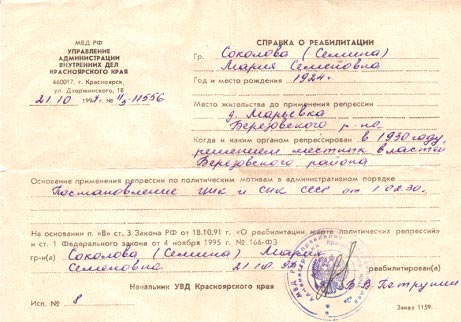 МВД РФ
УПРАВЛЕНИЕ
АДМИНИСТРАЦИИ
ВНУТРЕННИХ ДЕЛ
КРАСНОЯРСКОГО КРАЯ
660017, г. Красноярск
ул. Дзержинского, 18
21.10 199 г. № 11556
СПРАВКА О РЕАБИЛИТАЦИИ
Гр. Соколова (Семина)
Мария Семеновна
Год и место рождения 1924г.
Место жительства до применения репрессии
д. Марьевка
Березовского р-на
Когда и каким органом репрессирован в 1930 году,
решением местных властей
Березовского района
Основание применения репрессии по политическим мотивам в административном порядке
Постановление ЦИК и СНК СССР от 1.02.30г.
На основании п. «В» ст. 3 Закона РФ от 18.10.91 г. «О реабилитации жертв политических репрессий»
и ст. 1 Федерального закона от 4 ноября 1995 г. № 166-ФЗ
гр-н(а) Соколова (Семина) Мария
Семеновна 21.10 реабилитирован(а)
Начальник УВД Красноярского края
Исп. № 8
Заказ 1159.